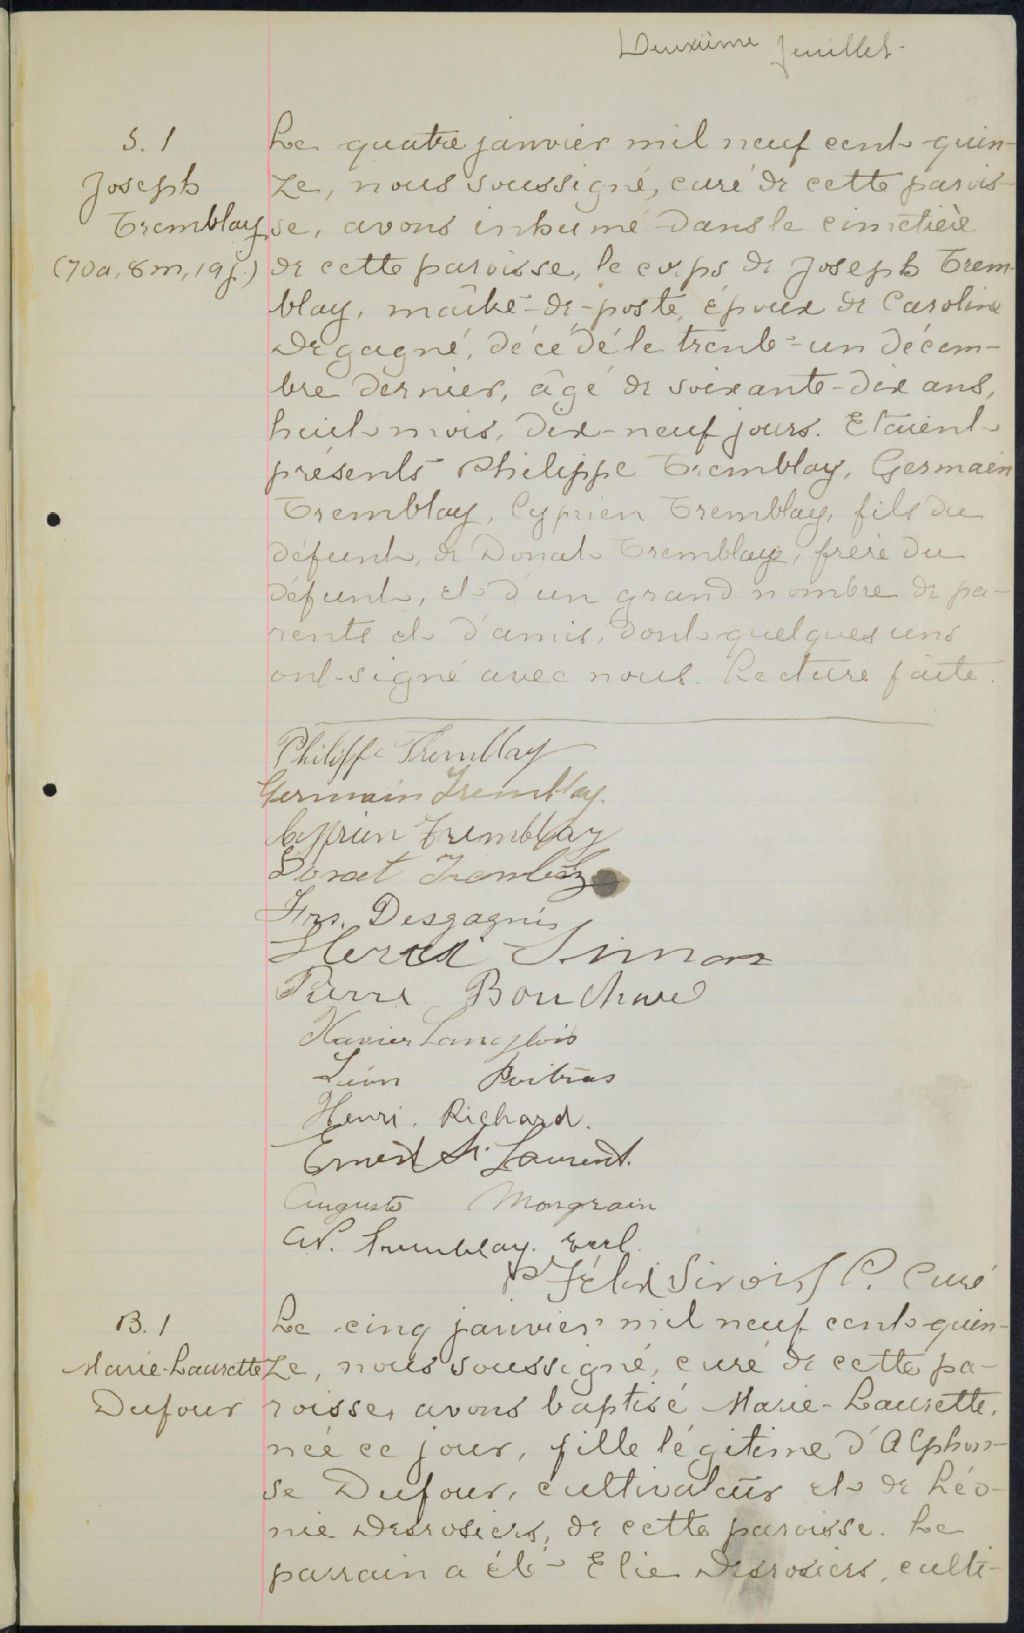 Deuxième feuillet.
S. 1
Joseph
Tremblay
(70a, 8m, 19j.)
Le quatre janvier mil neuf cent quin-
ze, nous soussigné, curé de cette parois-
se, avons inhumé dans le cimetière
de cette paroisse, le corps de Joseph Trem-
blay, maître-de-poste, époux de Caroline
Degagné, décédé le trente-un décem-
bre dernier, âgé de soixante-dix ans,
huit mois, dix-neuf jours. Etaient
présents Philippe Tremblay, Germain
Tremblay, Cyprien Tremblay, fils du
défunt, de Donat Tremblay, frère du
défunt, et d'un grand nombre de pa-
rents et d'amis, dont quelques uns
ont signé avec nous. Lecture faite.
Philippe Tremblay
Germain Tremblay.
Cyprien Tremblay
Donat Tremblay
Frs. Desgagnés
Simon
Pierre Bouchard
Xavier Langlois
Léon Poitras
Henri. Richard.
Ernest St. Laurent.
Auguste Mongrain
Tremblay. Eccl.
Félix Sirois, P. Curé
B. 1
Marie-Laurette
Dufour
Le cinq janvier mil neuf cent quin-
ze, nous soussigné, curé de cette pa-
roisse, avons baptisé Marie-Laurette,
née ce jour, fille légitime d'Alphon-
se Dufour, cultivateur et de Léo-
nie Desrosiers, de cette paroisse. Le
parrain a été Elie Desrosiers, culti-